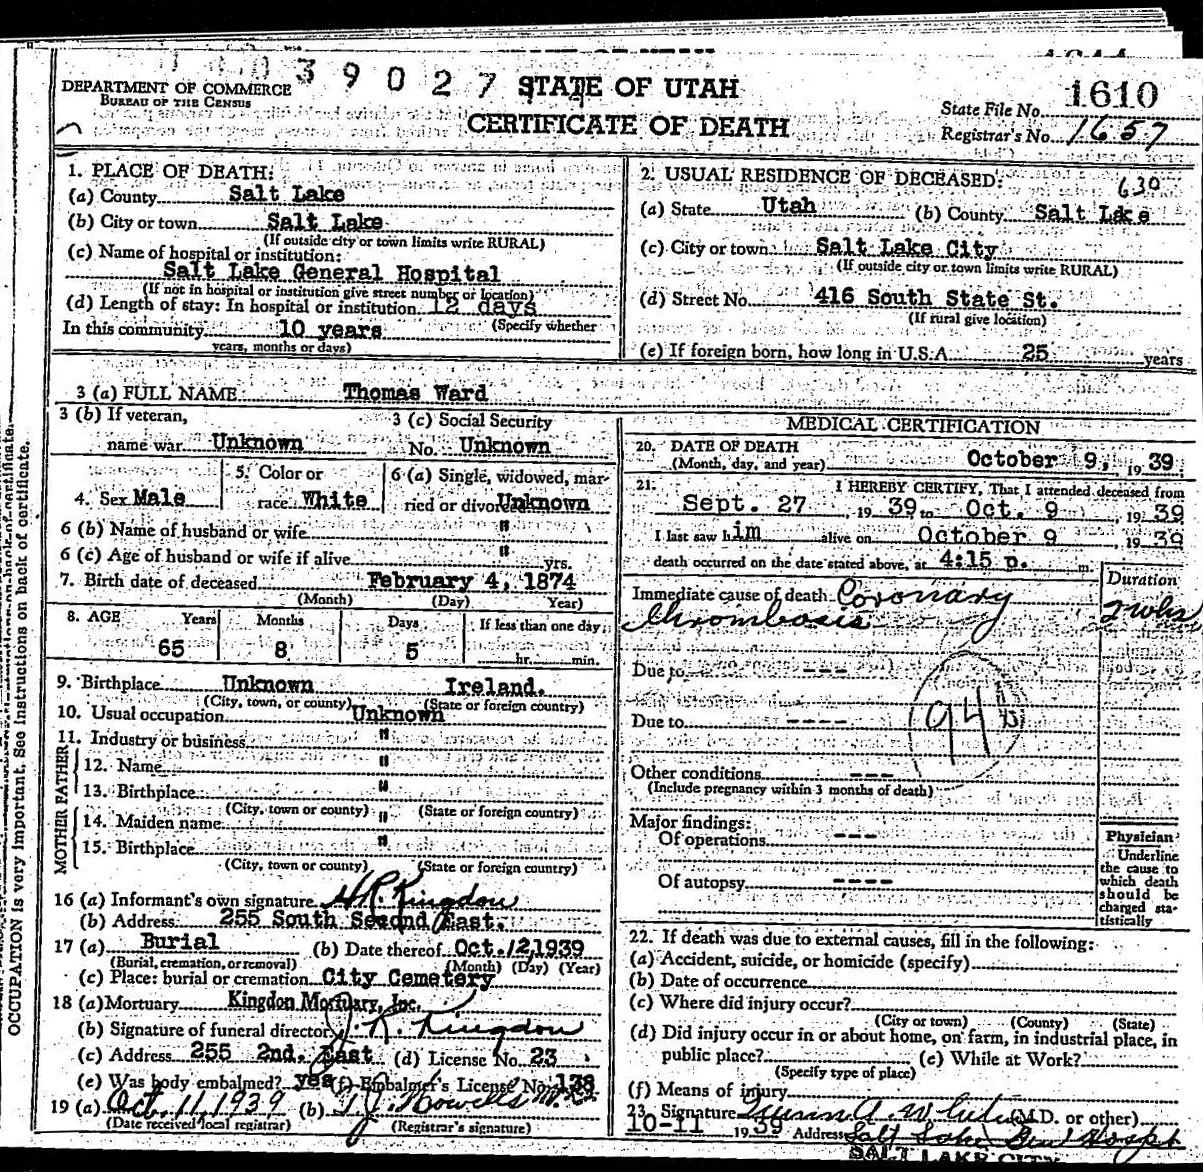 39027
DEPARTMENT OF COMMERCE
BUREAU OF THE CENSUS
STATE OF UTAH
CERTIFICATE OF DEATH
State File No. 1610
Registrar's No. 1657
1. PLACE OF DEATH:
(a) County Salt Lake
(b) City or town Salt Lake
(If outside city or town limits write RURAL)
(c) Name of hospital or institution:
Salt Lake General Hospital
(If not in hospital or institution give street number or location)
(d) Length of stay: In hospital or institution 12 days
(Specify whether
In this community 10 years
years, months or days)
2. USUAL RESIDENCE OF DECEASED:
630
(a) State Utah (b) County Salt Lake
(c) City or town Salt Lake City
(If outside city or town limits write RURAL)
(d) Street No. 416 South State St.
(If rural give location)
(e) If foreign born, how long in U.S.A. 25 years
3 (a) FULL NAME Thomas Ward
3 (b) If veteran,
name war Unknown
3 (c) Social Security
No. Unknown
4. Sex Male
5. Color or
race White
6 (a) Single, widowed, mar-
ried or divorced Unknown
6 (b) Name of husband or wife "
6 (c) Age of husband or wife if alive " yrs.
7. Birth date of deceased February 4, 1874
(Month) (Day) Year)
8. AGE Years Months Days If less than one day
65 8 5 hr. min.
9. Birthplace Unknown Ireland.
(City, town, or county) (State or foreign country)
10. Usual occupation Unknown
11. Industry or business "
FATHER
12. Name "
13. Birthplace "
(City, town or county) (State or foreign country)
MOTHER
14. Maiden name "
15. Birthplace "
(City, town or county) (State or foreign country)
16 (a) Informant's own signature H.R. Kingdon
(b) Address 255 South Second East.
17 (a) Burial (b) Date thereof Oct. 12, 1939
(Burial, cremation, or removal) (Month) (Day) (Year)
(c) Place: burial or cremation City Cemetery
18 (a) Mortuary Kingdon Mortuary, Inc.
(b) Signature of funeral director R. Kingdon
(c) Address 255 2nd. East (d) License No. 23
(e) Was body embalmed? yes (f) Embalmer's License No. 138
19 (a) Oct. 11, 1939 (b) T.J. Howells M.D.
(Date received local registrar) (Registrar's signature)
MEDICAL CERTIFICATION
20. DATE OF DEATH
(Month, day, and year) October 9, 1939
21. I HEREBY CERTIFY, That I attended deceased from
Sept. 27, 1939 to Oct. 9, 1939
I last saw him alive on October 9, 1939
death occurred on the date stated above, at 4:15 p. m.
Immediate cause of death Coronary
thrombosis
Duration
2 wks
Due to ---
Due to ----
94 b
Other conditions ---
(Include pregnancy within 3 months of death)
Major findings:
Of operations ---
Of autopsy ----
Physician
Underline
the cause to
which death
should be
charged sta-
tistically
22. If death was due to external causes, fill in the following:
(a) Accident, suicide, or homicide (specify)
(b) Date of occurrence
(c) Where did injury occur?
(City or town) (County) (State)
(d) Did injury occur in or about home, on farm, in industrial place, in
public place? (e) While at Work?
(Specify type of place)
(f) Means of injury
23. Signature A. (M.D. or other)
10-11 1939 Address Salt Lake Genl Hospt
SALT LAKE CITY
OCCUPATION is very important. See instructions on back of certificate.